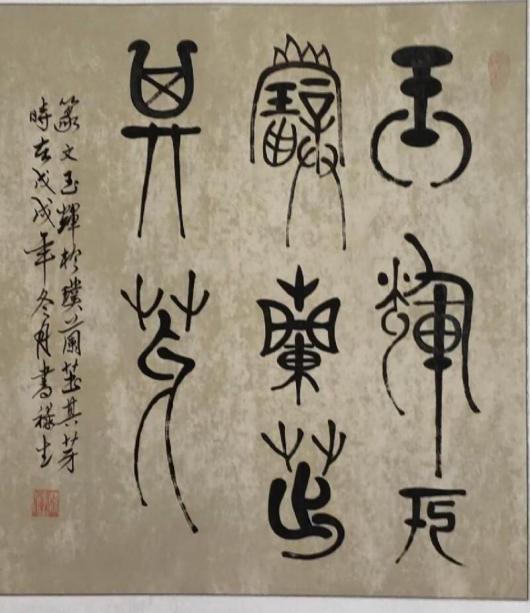 玉輝於
璞蘭茁
其芽
篆文玉輝於璞蘭茁其芽
時在戊戌年冬月書